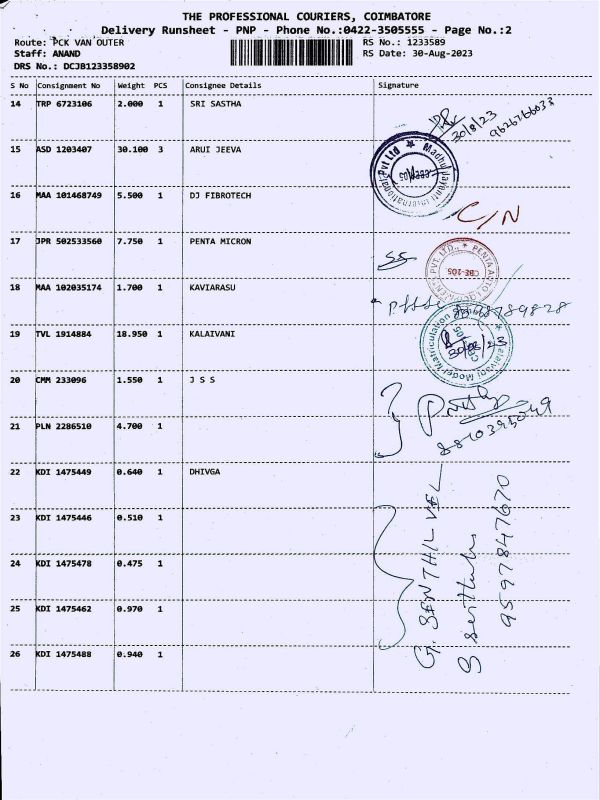 THE PROFESSIONAL COURIERS, COIMBATORE
Delivery Runsheet - PNP - Phone No.:0422-3505555 - Page No.:2
Route: PCK VAN OUTER RS No.: 1233589
Staff: ANAND RS Date: 30-Aug-2023
DRS No.: DCJB123358902
S No Consignment No Weight PCS Consignee Details Signature
14 TRP 6723106 2.000 1 SRI SASTHA
30/8/23 9626766033
15 ASD 1203407 30.100 3 ARUI JEEVA
Madhu Jayanti International Pvt Ltd
16 MAA 101468749 5.500 1 DJ FIBROTECH
C/N
17 JPR 502533560 7.750 1 PENTA MICRON
SS
PENTA AUTO PVT. LTD., CBE-205
18 MAA 102035174 1.700 1 KAVIARASU
19 TVL 1914884 18.950 1 KALAIVANI
Kalaivani Model Matriculation
30/08/23
20 CMM 233096 1.550 1 J S S
21 PLN 2286510 4.700 1
8810395049
22 KDI 1475449 0.640 1 DHIVGA
23 KDI 1475446 0.510 1
24 KDI 1475478 0.475 1
25 KDI 1475462 0.970 1
26 KDI 1475488 0.940 1
G. SENTHIL VEL
9597847670